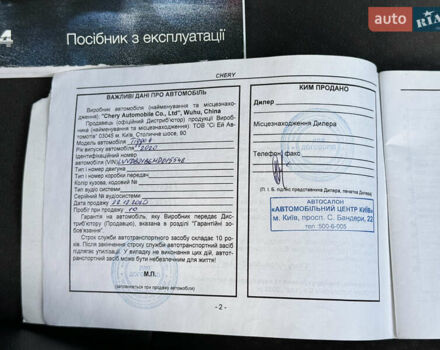 4
Посібник з експлуатації
auto RIA
CHERY
ВАЖЛИВІ ДАНІ ПРО АВТОМОБІЛЬ
Виробник автомобіля (найменування та місцезна-
ходження): "Chery Automobile Co., Ltd", Wuhu, China
Продавець (офіційний Дистриб'ютор) продукції Вироб-
ника (найменування та місцезнаходження): ТОВ "Сі Ей Авто-
мотів" 03045 м. Київ, Столичне шосе, 90
Модель автомобіля Tiggo
Рік випуску автомобіля 2020
Ідентифікаційний номер
автомобіля (VIN)
Тип і номер двигуна
Тип і номер коробки передач
Колір кузова, кодовий №
Тип аудіосистеми
Серійний № аудіосистеми
Дата продажу
Пробіг при продажу 10
Гарантія на автомобіль, яку Виробник передає Дис-
триб'ютору (Продавцю), вказана в розділі "Гарантійні зо-
бов'язання"
Строк служби автотранспортного засобу складає 10 ро-
ків. Після закінчення строку служби автотранспортний засіб
підлягає утилізації. У випадку не виконання цих дій, автот-
ранспортний засіб може бути небезпечним для життя!
М.П.
(заповнюється при продажу автомобіля)
КИМ ПРОДАНО
Дилер
Місцезнаходження Дилера
Телефон, факс
(П. І. Б. підпис представника Дилера, печатка Дилера)
АВТОСАЛОН
«АВТОМОБІЛЬНИЙ ЦЕНТР КИЇВ»
м. Київ, просп. С. Бандери, 22
тел. 500-6-005
- 2 -